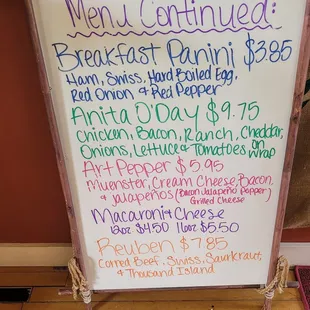 Menu Continued:
Breakfast Panini $3.85
Ham, Swiss, Hard Boiled Egg,
Red Onion & Red Pepper
Anita O'Day $9.75
Chicken, Bacon, Ranch, Cheddar,
Onions, Lettuce & Tomatoes on wrap
Art Pepper $5.95
Muenster, Cream Cheese, Bacon,
& Jalapeños (Bacon Jalapeño Popper)
Grilled Cheese
Macaroni & Cheese
12oz $4.50 16oz $5.50
Reuben $7.85
Corned Beef, Swiss, Saurkraut,
& Thousand Island